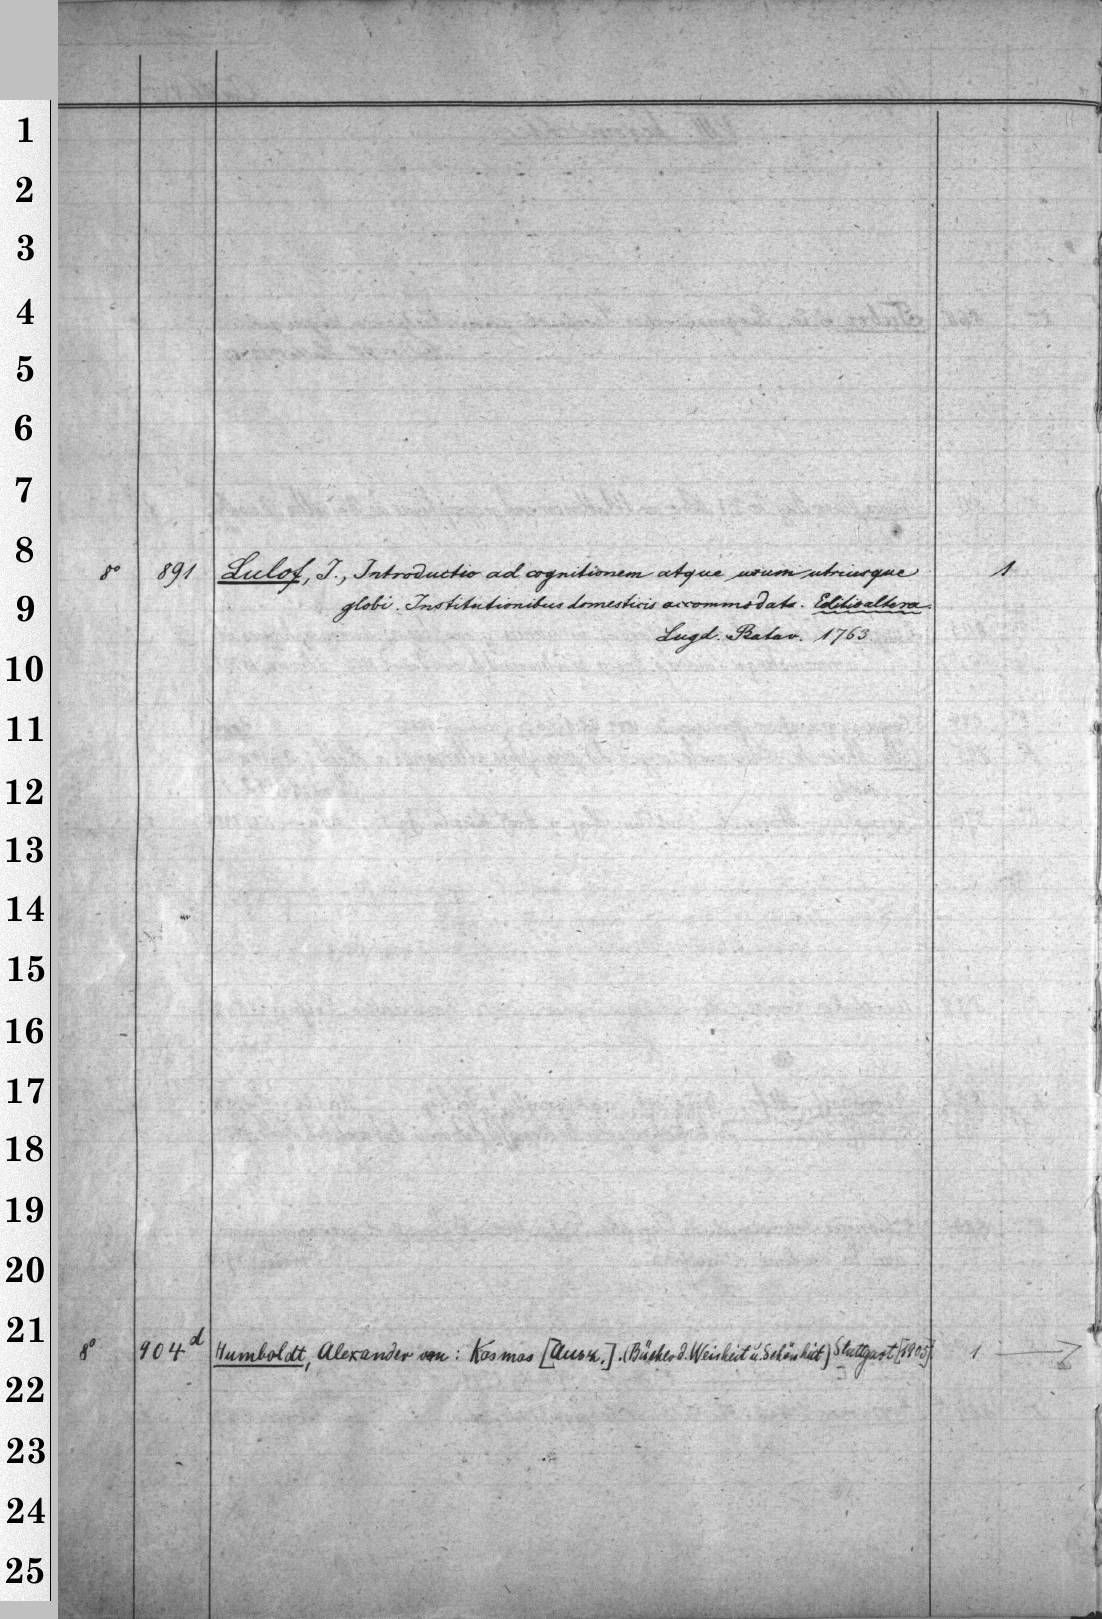 1
2
3
4
5
6
7
8
8° 891 Lulof, J., Introductio ad cognitionem atque usum utriusque 1
9
globi. Institutionibus domesticis accommodata. Editio altera.
Lugd. Batav. 1763
10
11
12
13
14
15
16
17
18
19
20
21
8° 904d Humboldt, Alexander von: Kosmos [Ausz.]. (Bücher d. Weisheit u. Schönheit) Stuttgart [1905]. 1
22
23
24
25